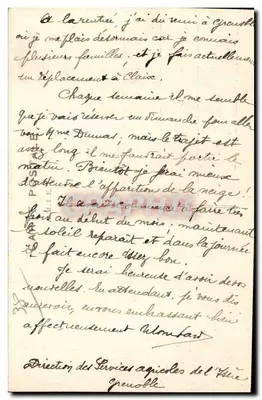 A la rentrée, j'ai dû venir à Grenoble
où je me plais désormais car je connais
plusieurs familles. et je fais actuellement
un remplacement à Claix.
Chaque semaine il me semble
que je vais réserver un dimanche pour aller
voir Mme Dumas; mais le trajet est
assez long il me faudrait partir le
matin. Bientôt je peux mieux
d'attendre l'apparition de la neige!
Il a faire très
froid au début du mois, maintenant
le soleil reparaît et dans la journée
il fait encore assez bon.
Je serai heureuse d'avoir de vos
nouvelles. En attendant, je vous dis
au revoir, en vous embrassant bien
affectueusement
Direction des Services agricoles de l'Isère
Grenoble
CARTE POSTALE